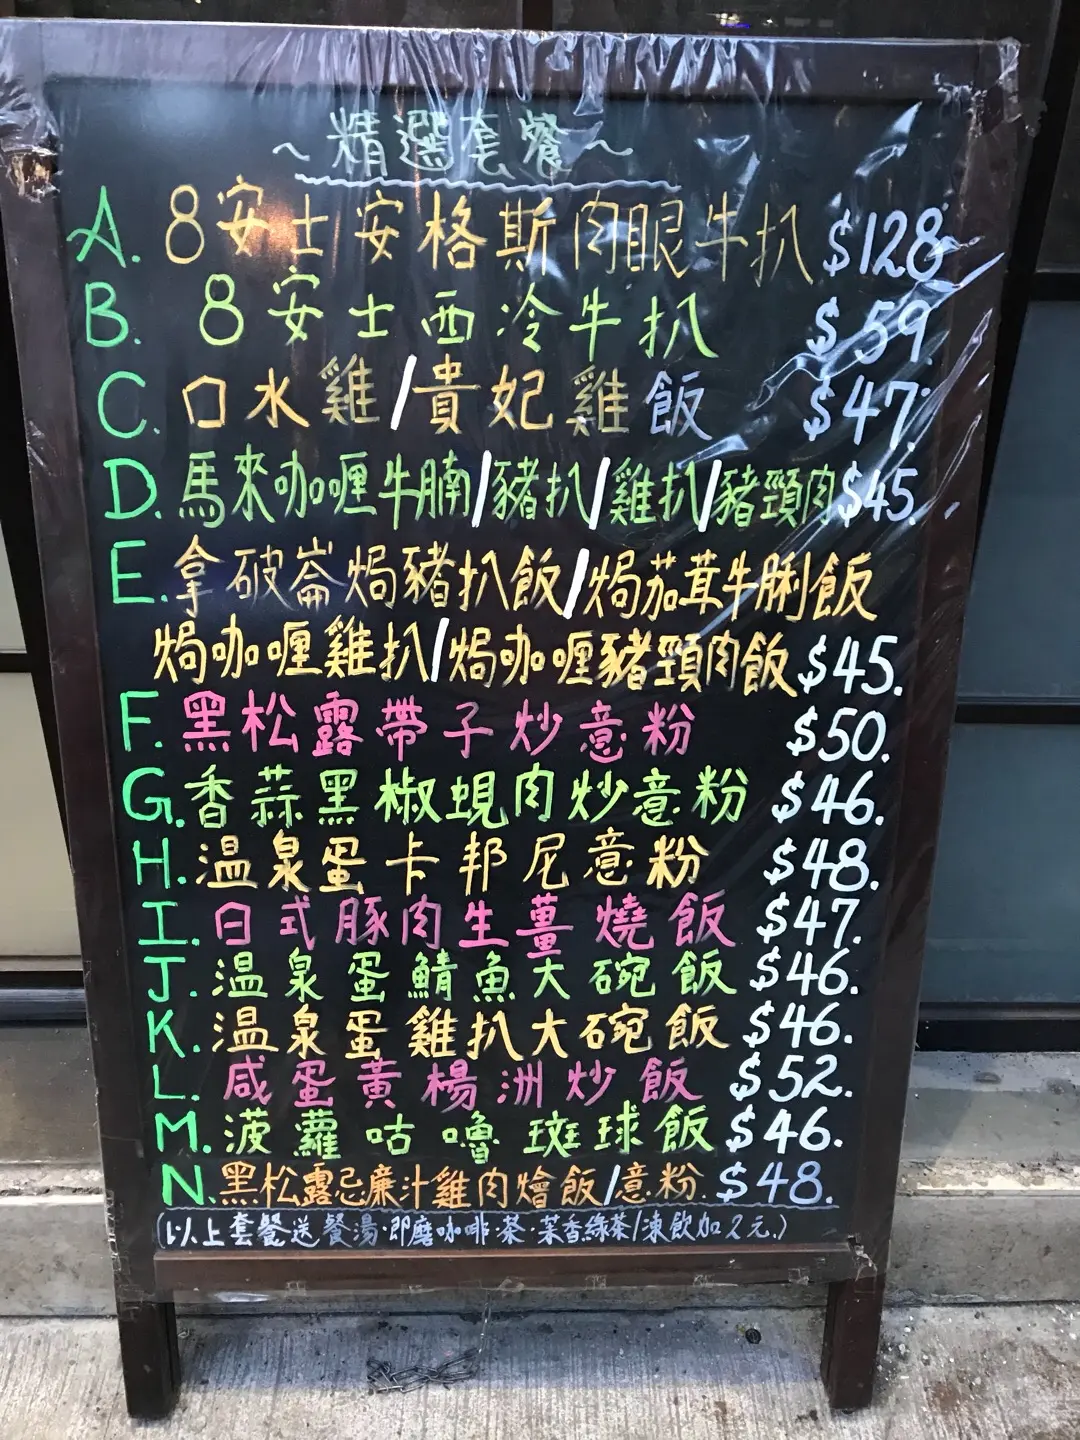 ~精選套餐~
A. 8安士安格斯肉眼牛扒 $128
B. 8安士西冷牛扒 $59.
C. 口水雞/貴妃雞飯 $47.
D. 馬來咖喱牛腩/豬扒/雞扒/豬頸肉 $45.
E. 拿破崙焗豬扒飯/焗茄茸牛脷飯
焗咖喱雞扒/焗咖喱豬頸肉飯 $45.
F. 黑松露帶子炒意粉 $50.
G. 香蒜黑椒蜆肉炒意粉 $46.
H. 温泉蛋卡邦尼意粉 $48.
I. 日式豚肉生薑燒飯 $47.
J. 温泉蛋鯖魚大碗飯 $46.
K. 温泉蛋雞扒大碗飯 $46.
L. 咸蛋黃楊洲炒飯 $52.
M. 菠蘿咕嚕斑球飯 $46.
N. 黑松露忌廉汁雞肉燴飯/意粉. $48.
(以上套餐送餐湯·即磨咖啡·茶·茉香綠茶/凍飲加2元.)